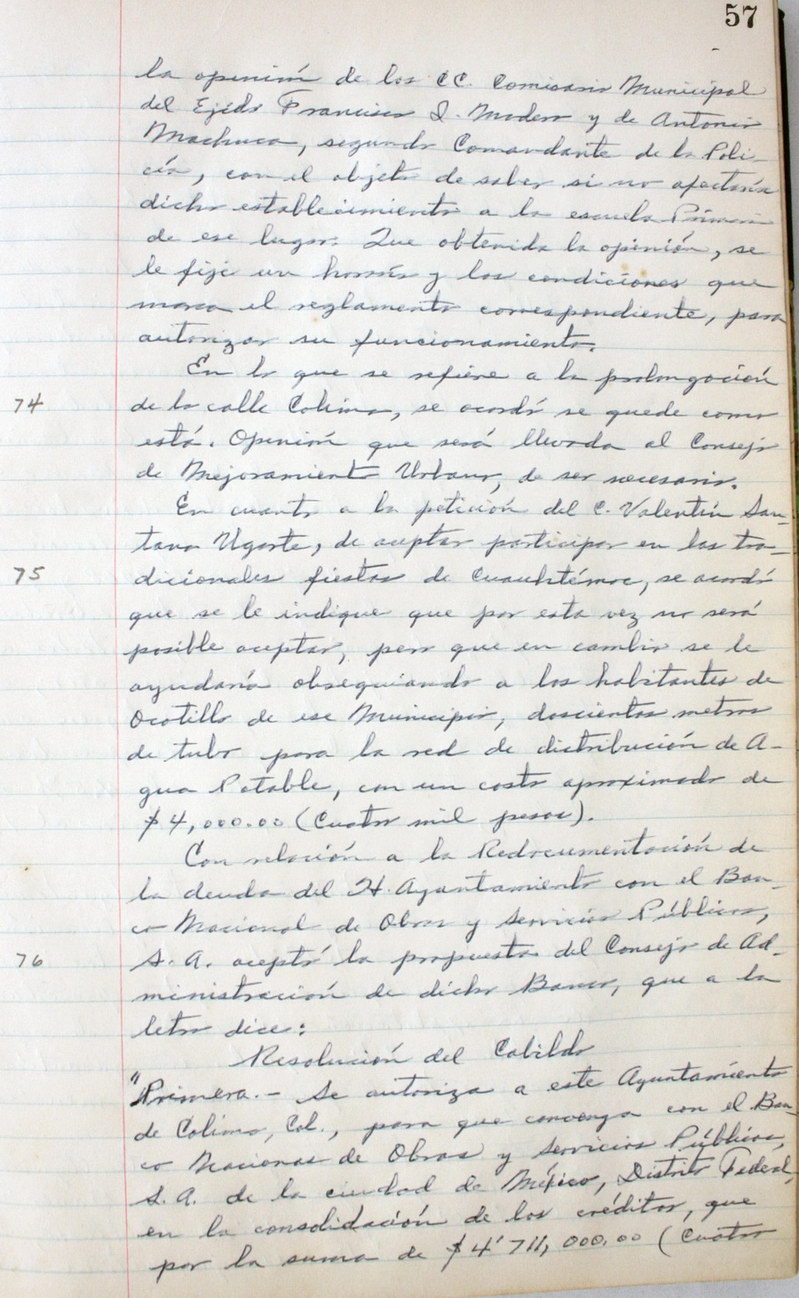 57
la opinión de los CC. Comisario Municipal
del Ejido Francisco I. Madero y de Antonio
Machuca, segundo Comandante de la Poli-
cía, con el objeto de saber si no afectaría
dicho establecimiento a la escuela Primaria
de ese lugar. Que obtenida la opinión, se
le fije un horario y las condiciones que
marca el reglamento correspondiente, para
autorizar su funcionamiento.
En lo que se refiere a la prolongación
74 de la calle Colima, se acordó se quede como
está. Opinión que será llevada al Consejo
de Mejoramiento Urbano, de ser necesario.
En cuanto a la petición del C. Valentín San-
tana Ugarte, de aceptar participar en las tra-
75 dicionales fiestas de Cuauhtémoc, se acordó
que se le indique que por esta vez no será
posible aceptar, pero que en cambio se le
ayudaría obsequiando a los habitantes de
Ocotillo de ese Municipio, doscientos metros
de tubo para la red de distribución de A-
gua Potable, con un costo aproximado de
$4,000.00 (Cuatro mil pesos).
Con relación a la Redocumentación de
la deuda del H. Ayuntamiento con el Ban-
co Nacional de Obras y Servicios Públicos,
76 S. A. aceptó la propuesta del Consejo de Ad-
ministración de dicho Banco, que a la
letra dice:
Resolución del Cabildo
"Primera.- Se autoriza a este Ayuntamiento
de Colima, Col., para que convenga con el Ban-
co Nacional de Obras y Servicios Públicos,
S. A. de la ciudad de México, Distrito Federal,
en la consolidación de los créditos, que
por la suma de $4'711,000.00 (Cuatro